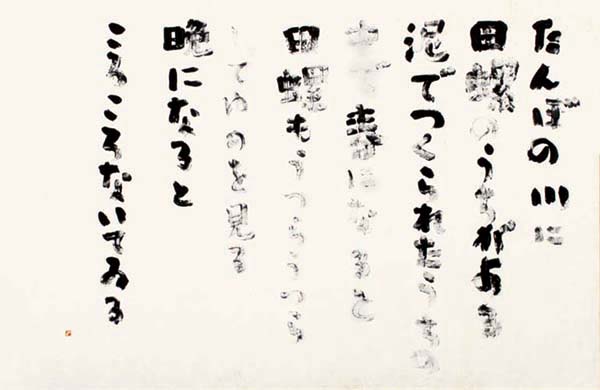 たんぼの川に
田螺のうちがある
泥でつくられたうちの
中で 春になると
田螺もうつらうつら
してゆめを見る
晩になると
ころころないてゐる